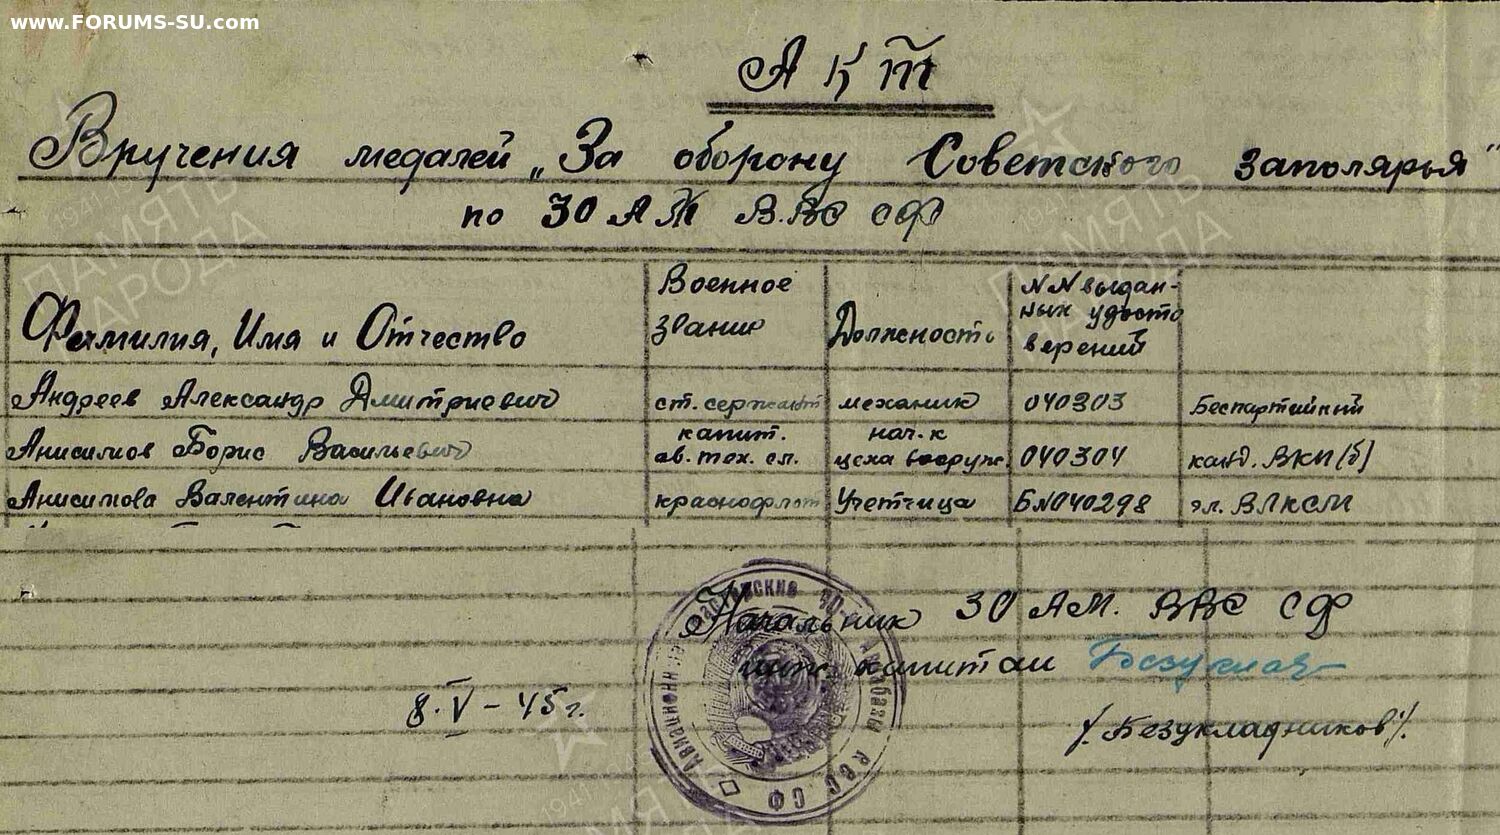 www.FORUMS-SU.com
АКТ
Вручения медалей „За оборону Советского заполярья"
по 30 АМ ВВС СФ
Фамилия, Имя и Отчество
Военное звание
Должность
NN выдан-
ных удосто
верений
Андреев Александр Дмитриевич ст. сержант механик 040303 Беспартийный
Анисимов Борис Васильевич капит. ав. тех. сл. нач-к цеха вооруж. 040304 канд. ВКП(б)
Анисимова Валентина Ивановна краснофлот учетчица БN040298 чл. ВЛКСМ
Начальник 30 АМ. ВВС СФ
инж. капитан
8.V-45г.
/Безукладников/.
ПАМЯТЬ
НАРОДА
ПАМЯТЬ
НАРОДА
авиабазы ВВС СФ